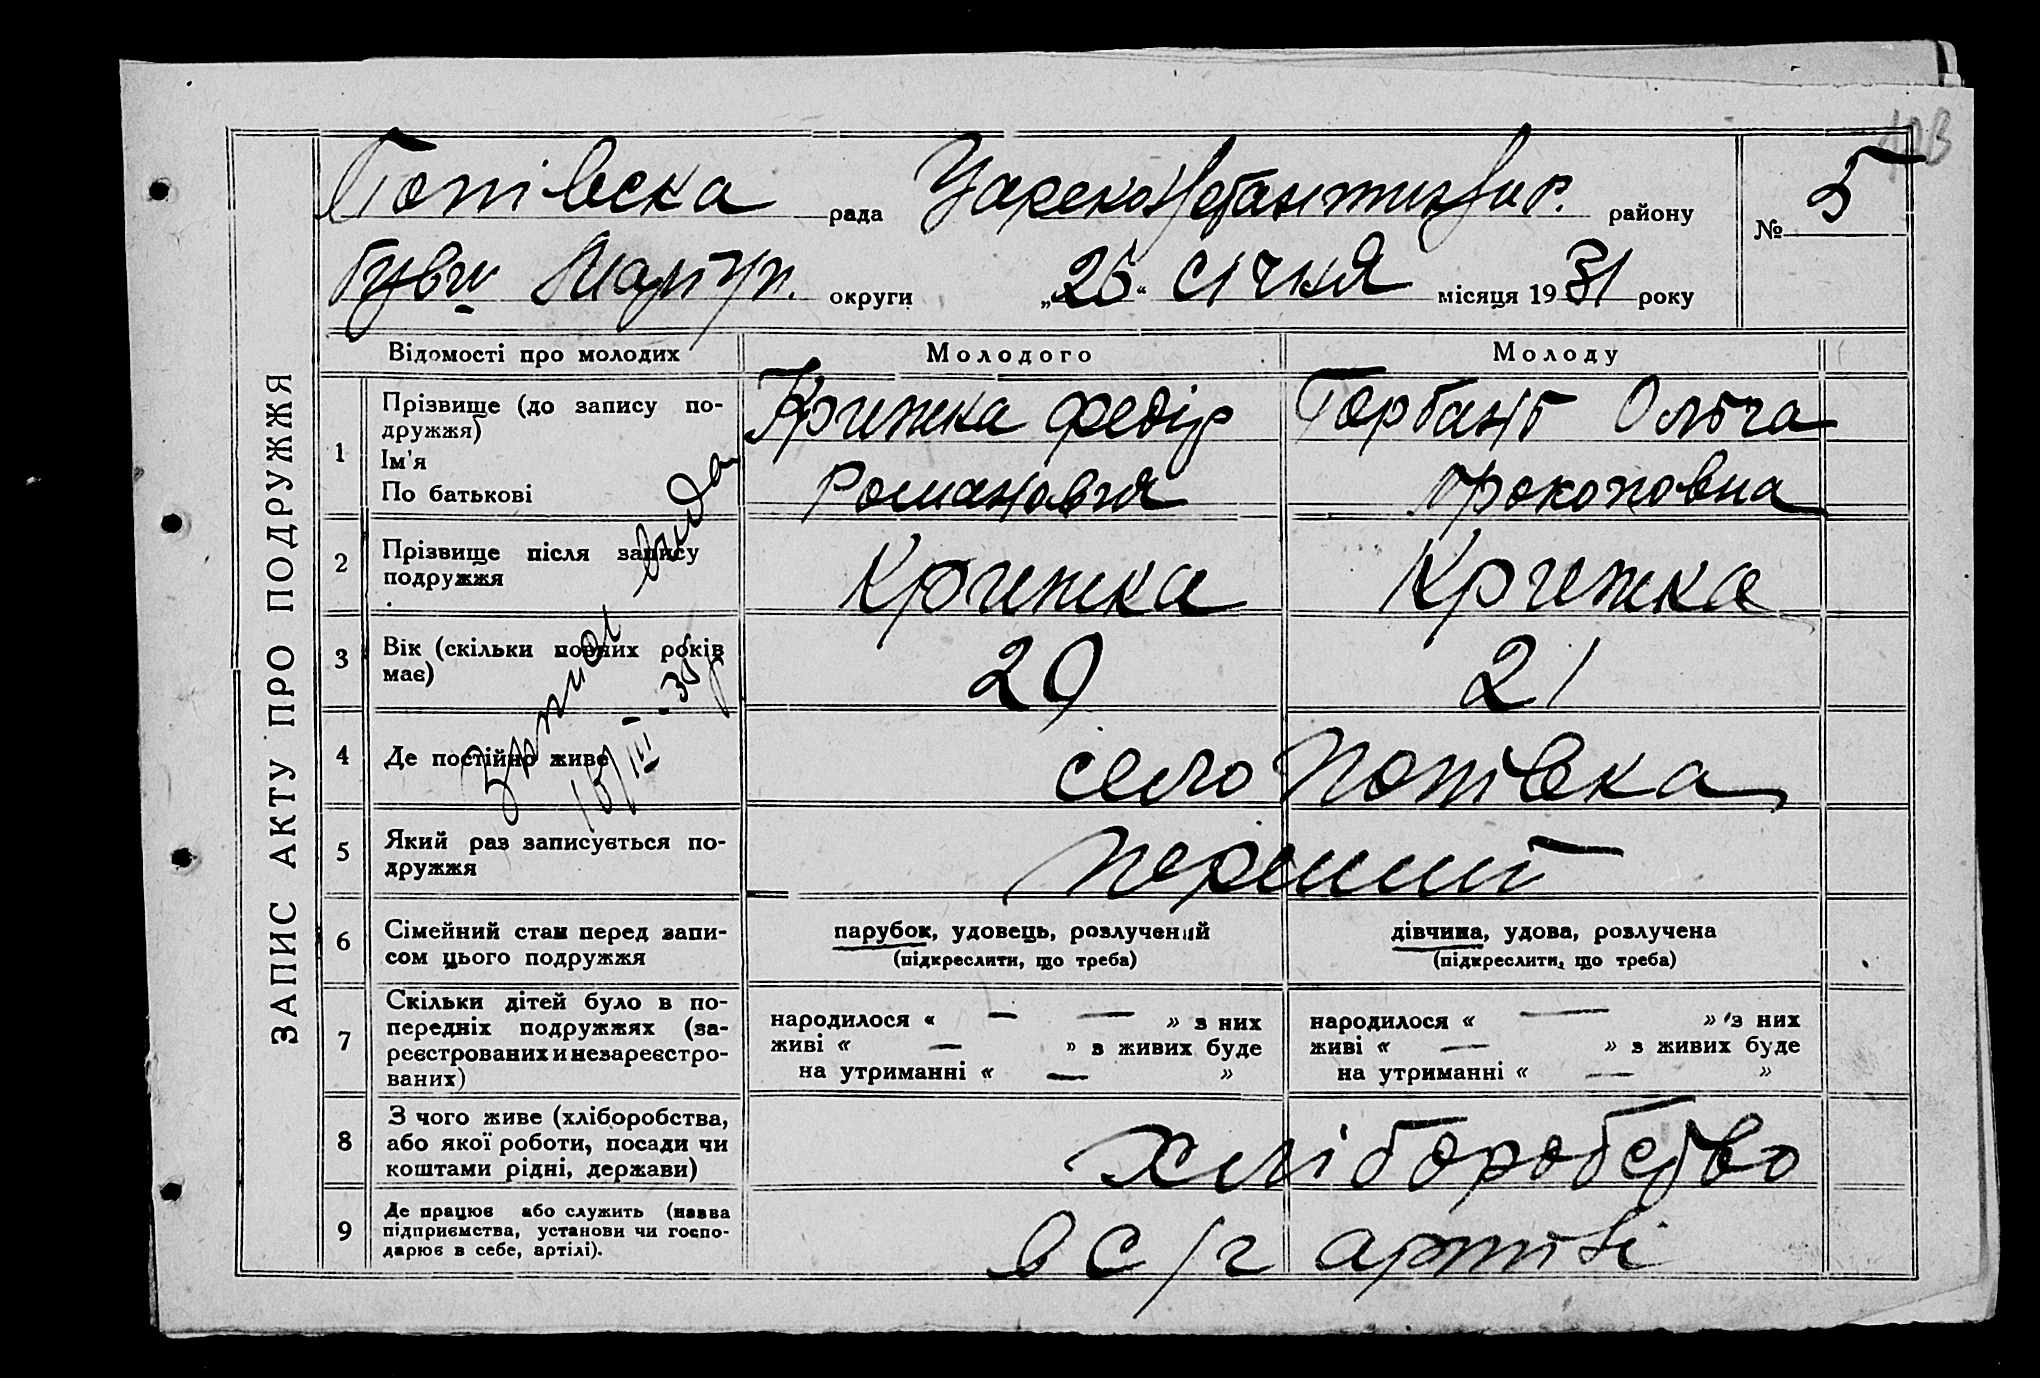 ЗАПИС АКТУ ПРО ПОДРУЖЖЯ
Попівска рада Царекон района району № 5
округи „25“ січня місяця 1931 року
Відомості про молодих Молодого Молоду
1 Прізвище (до запису по-
дружжя)
Ім'я
По батькові
Крижка Федір
Романович
Горбань Ольга
Прокоповна
2 Прізвище після запису
подружжя
Крижка Крижка
3 Вік (скільки повних років
має)
20 21
4 Де постійно живе
село Попівка
5 Який раз записується по-
дружжя
перший
6 Сімейний стан перед запи-
сом цього подружжя
парубок, удовець, розлучений
(підкреслити, що треба)
дівчина, удова, розлучена
(підкреслити, що треба)
7 Скільки дітей було в по-
передніх подружжях (за-
реєстрованих и незареєстро-
ваних)
народилося « — — » з них
живі « — » з живих буде
на утриманні « — »
народилося « — » з них
живі « — » з живих буде
на утриманні « — »
8 З чого живе (хліборобства,
або якої роботи, посади чи
коштами рідні, держави)
хліборобство
9 Де працює або служить (назва
підприємства, установи чи госпо-
дарює в себе, артілі).
в с/г артілі